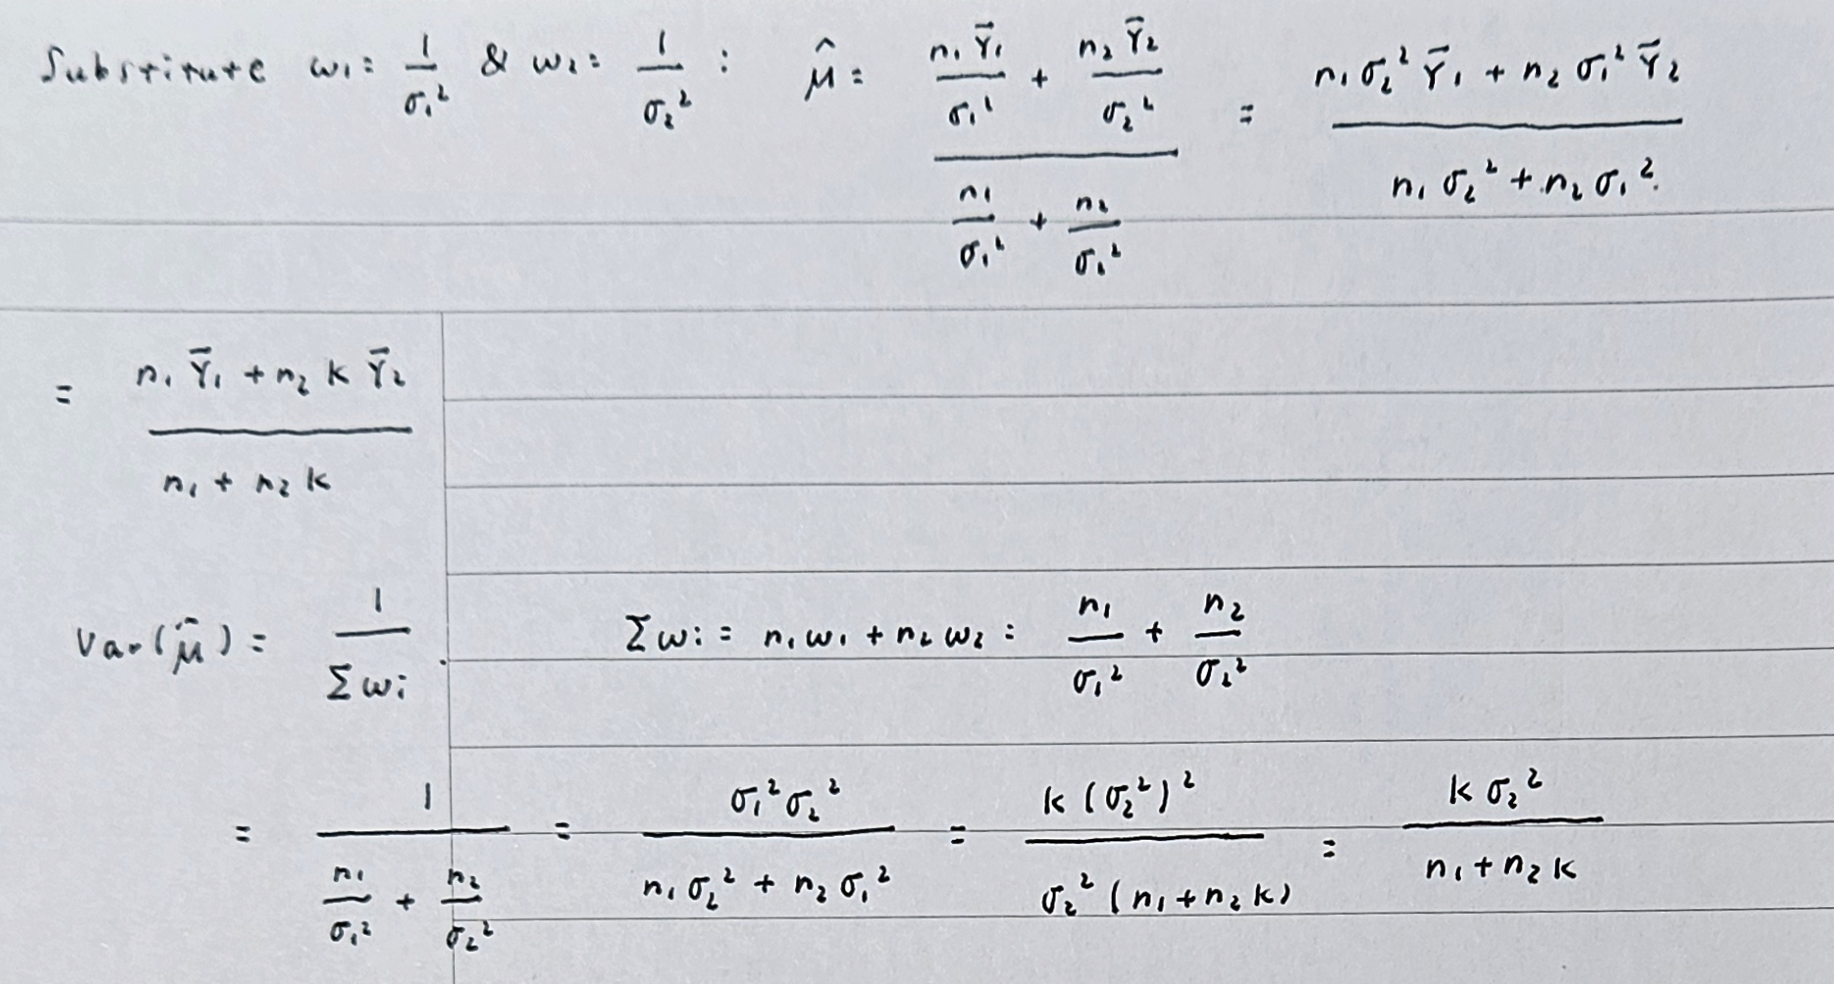 Substitute w₁ = 1/σ₁² & w₂ = 1/σ₂² : μ̂ = (n₁Ȳ₁/σ₁² + n₂Ȳ₂/σ₂²) / (n₁/σ₁² + n₂/σ₂²) = (n₁σ₂²Ȳ₁ + n₂σ₁²Ȳ₂) / (n₁σ₂² + n₂σ₁²)
= (n₁Ȳ₁ + n₂kȲ₂) / (n₁ + n₂k)
Var(μ̂) = 1/Σwi Σwi = n₁w₁ + n₂w₂ = n₁/σ₁² + n₂/σ₂²
= 1 / (n₁/σ₁² + n₂/σ₂²) = σ₁²σ₂² / (n₁σ₂² + n₂σ₁²) = k(σ₂²)² / (σ₂²(n₁ + n₂k)) = kσ₂² / (n₁ + n₂k)